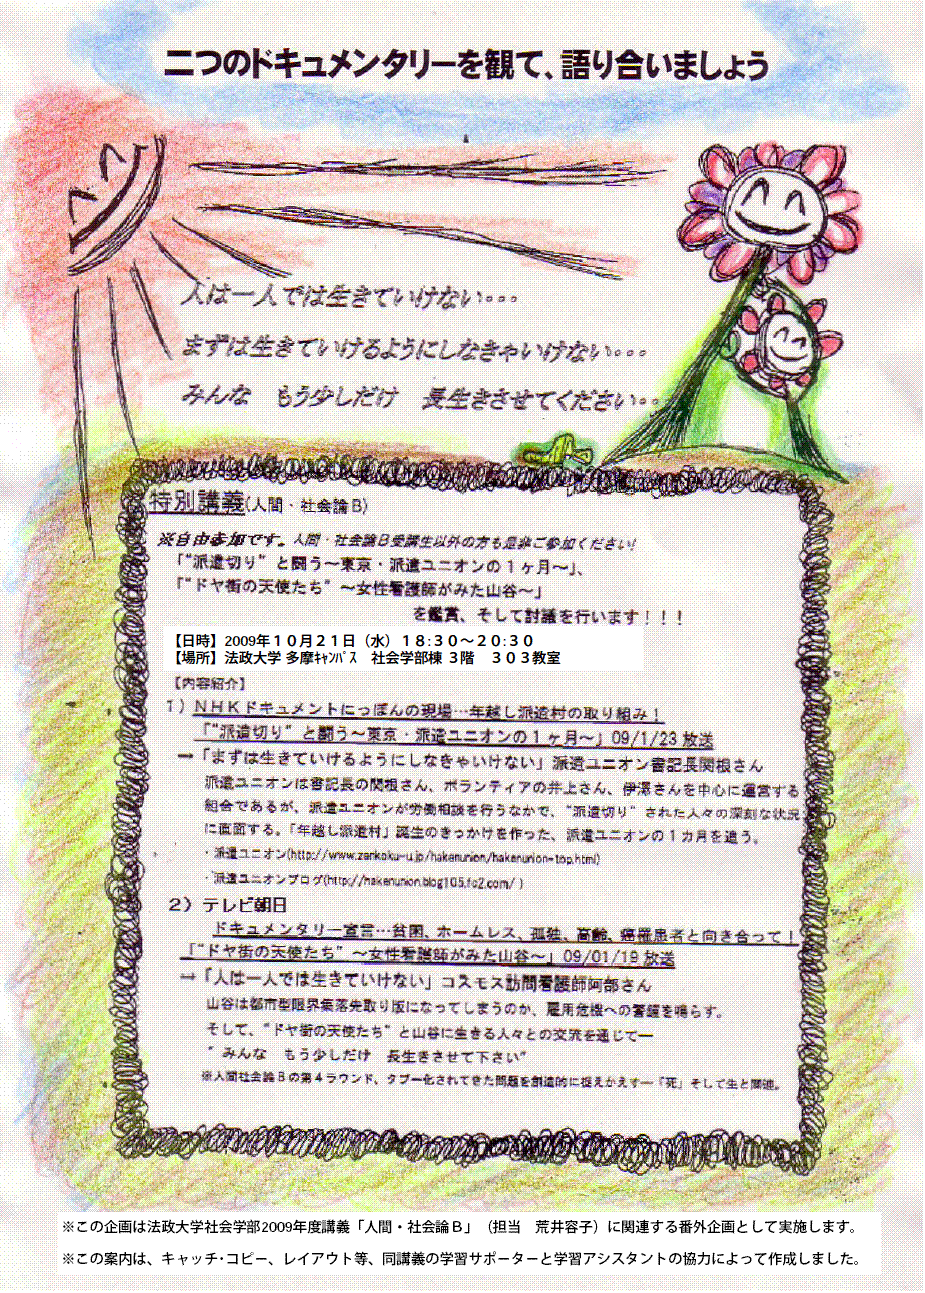 二つのドキュメンタリーを観て、語り合いましょう
人は一人では生きていけない・・・
まずは生きていけるようにしなきゃいけない・・・
みんな　もう少しだけ　長生きさせてください・・
特別講義(人間・社会論Ｂ)
※自由参加です。人間・社会論Ｂ受講生以外の方も是非ご参加ください!
「“派遣切り”と闘う～東京・派遣ユニオンの１ヶ月～」、
「“ドヤ街の天使たち”～女性看護師がみた山谷～」
を鑑賞、そして討議を行います！！！
【日時】2009年１０月２１日（水）１８:３０～２０:３０
【場所】法政大学 多摩ｷｬﾝﾊﾟｽ　社会学部棟 ３階　３０３教室
【内容紹介】
１）ＮＨＫドキュメントにっぽんの現場…年越し派遣村の取り組み！
「“派遣切り”と闘う～東京・派遣ユニオンの１ヶ月～」09/1/23 放送
→「まずは生きていけるようにしなきゃいけない」派遣ユニオン書記長関根さん
派遣ユニオンは書記長の関根さん、ボランティアの井上さん、伊澤さんを中心に運営する
組合であるが、派遣ユニオンが労働相談を行うなかで、“派遣切り”された人々の深刻な状況
に直面する。「年越し派遣村」誕生のきっかけを作った、派遣ユニオンの１カ月を追う。
・派遣ユニオン(http://www.zenkoku-u.jp/hakenunion/hakenunion-top.html)
・派遣ユニオンブログ(http://hakenunion.blog105.fc2.com/ )
２）テレビ朝日
ドキュメンタリー宣言…貧困、ホームレス、孤独、高齢、癌罹患者と向き合って！
「“ドヤ街の天使たち”～女性看護師がみた山谷～」09/01/19 放送
→「人は一人では生きていけない」コスモス訪問看護師阿部さん
山谷は都市型限界集落先取り版になってしまうのか、雇用危機への警鐘を鳴らす。
そして、“ドヤ街の天使たち”と山谷に生きる人々との交流を通じて―
“みんな　もう少しだけ　長生きさせて下さい”
※人間社会論Ｂの第４ラウンド、タブー化されてきた問題を創造的に捉えかえす―「死」そして生と関連。
※この企画は法政大学社会学部2009年度講義「人間・社会論Ｂ」（担当　荒井容子）に関連する番外企画として実施します。
※この案内は、キャッチ･コピー、レイアウト等、同講義の学習サポーターと学習アシスタントの協力によって作成しました。